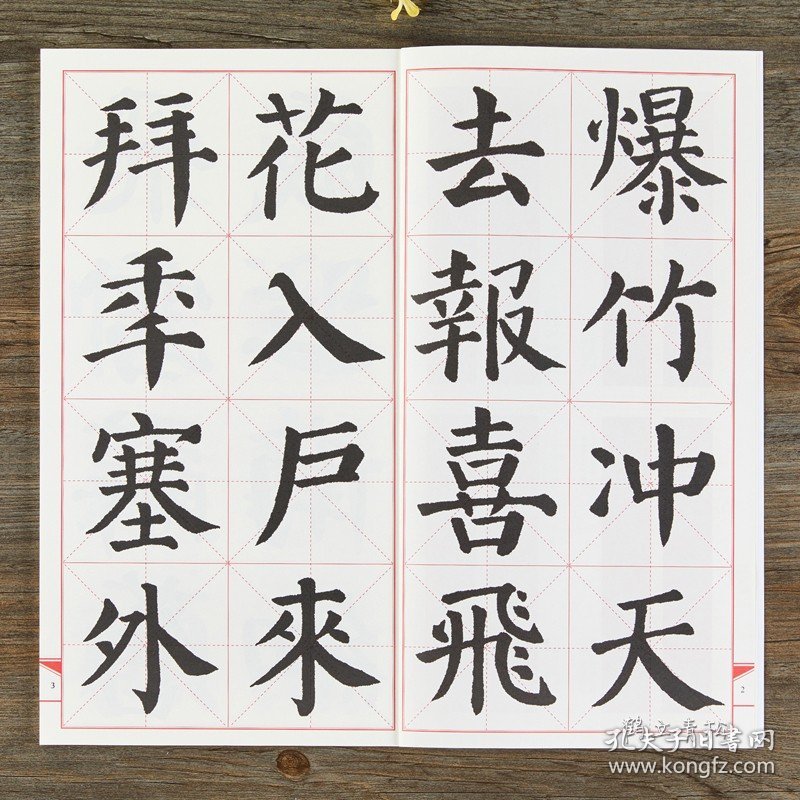 爆竹冲天
去報喜飛
花入戶來
拜秊塞外
2
3
鹤立青松
孔夫子旧书网
www.kongfz.com